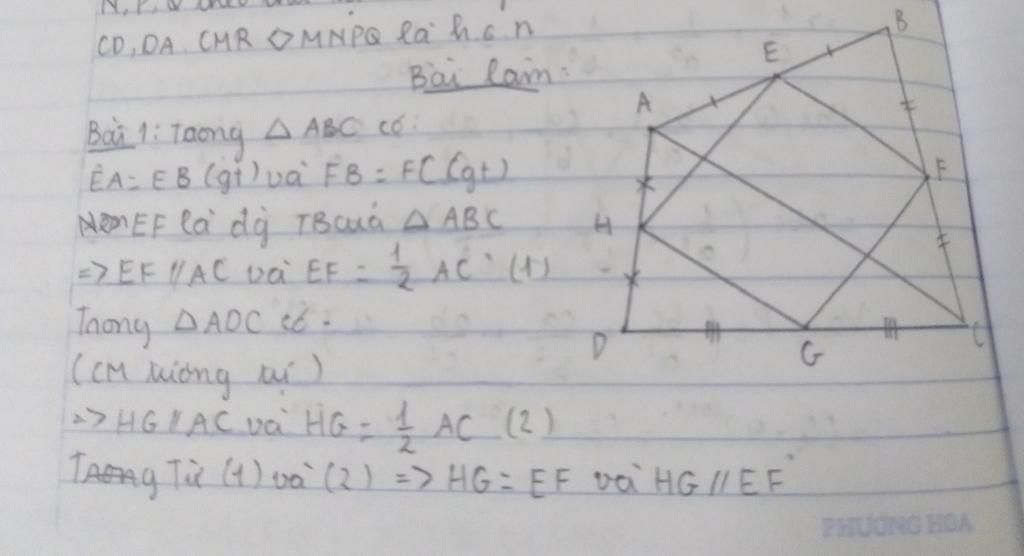 N, P, Q
CD, DA. CMR ◇ MNPQ là h.c.n
Bài làm:
Bài 1: Trong △ ABC có:
EA = EB (gt) và FB = FC (gt)
Nên EF là đg TB của △ ABC
=> EF // AC và EF = 1/2 AC (1)
Trong △ADC có:
(CM tương tự)
=> HG // AC và HG = 1/2 AC (2)
Trong Từ (1) và (2) => HG = EF và HG // EF
A
E
B
H
F
D
G
C
PHƯƠNG HOA